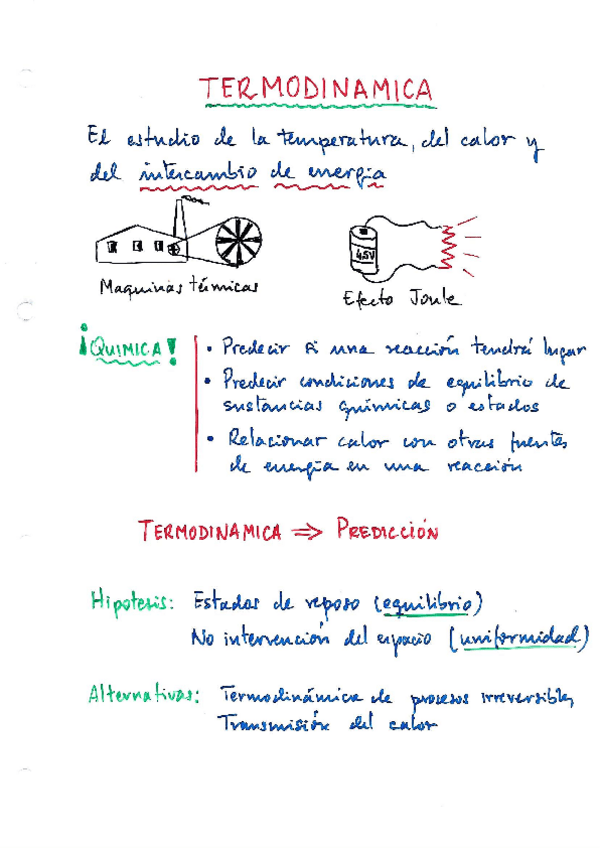 TERMODINAMICA
El estudio de la temperatura, del calor y
del intercambio de energía
4,5V
Maquinas térmicas
Efecto Joule
¡QUIMICA!
• Predecir si una reacción tendrá lugar
• Predecir condiciones de equilibrio de
sustancias químicas o estados
• Relacionar calor con otras fuentes
de energía en una reacción
TERMODINAMICA ⇒ PREDICCIÓN
Hipotesis: Estados de reposo (equilibrio)
No intervención del espacio (uniformidad)
Alternativas: Termodinámica de procesos irreversibles
Transmisión del calor